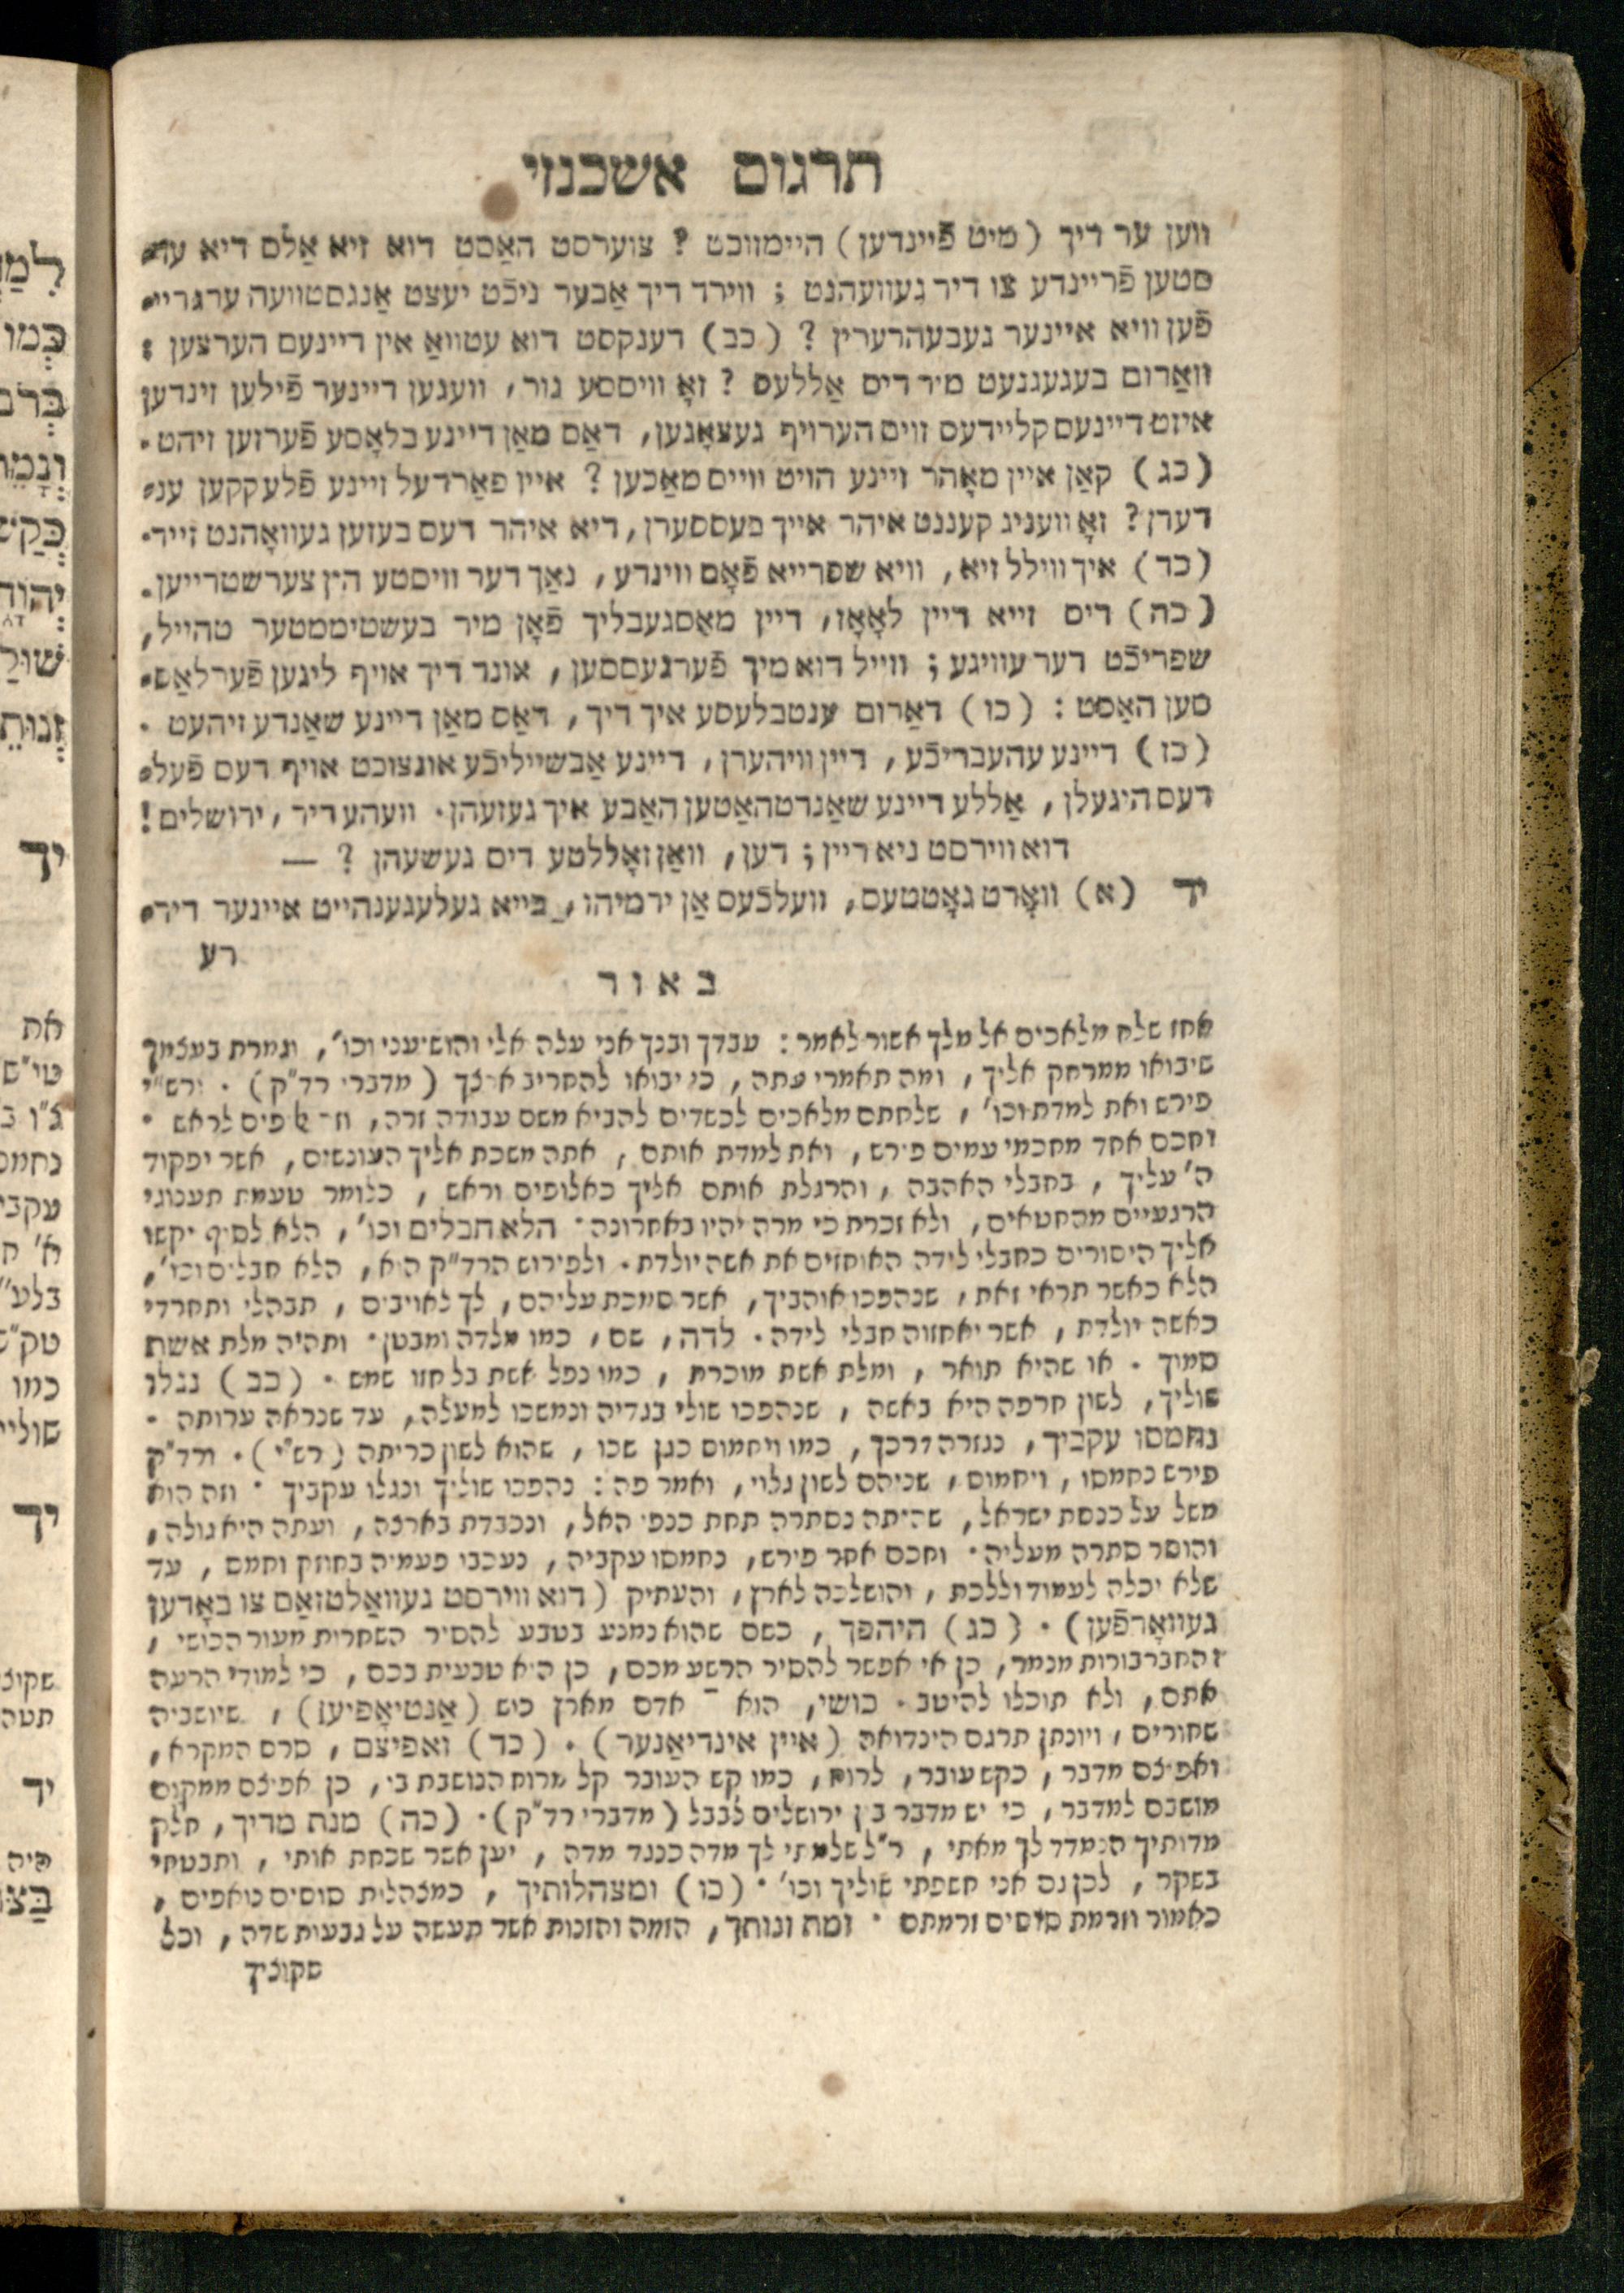 תרגום אשכנזי
ווען ער דיך (מיט פֿיינדען) היימזוכט ? צוערסט האַסט דוא זיא אַלס דיא ער⸗
סטען פֿריינדע צו דיר געוועהנט ; ווירד דיך אַבער ניכֿט יעצט אַנגסטוועה ערגריי⸗
פֿען וויא איינער געבעהרערין ? (כב) דענקסט דוא עטוואַ אין דיינעם הערצען :
וואַרום בעגעגנעט מיר דיס אַללעס ? זאָ וויססע נור, וועגען דיינער פֿילען זינדען
איזט דיינעם קליידעס זוים הערויף געצאָגען, דאַס מאַן דיינע בלאָסע פֿערזען זיהט.
(כג) קאַן איין מאָהר זיינע הויט ווייס מאַכען ? איין פאַרדעל זיינע פֿלעקקען ענ⸗
דערן ? זאָ וועניג קעננט איהר אייך בעססערן, דיא איהר דעס בעזען געוואָהנט זייד.
(כד) איך ווילל זיא, וויא שפרייא פֿאָם ווינדע, נאַך דער וויסטע הין צערשטרייען.
(כה) דיס זייא דיין לאָאָז, דיין מאַסגעבליך פֿאָן מיר בעשטיממטער טהייל,
שפריכֿט דער עוויגע ; ווייל דוא מיך פֿערגעססען, אונד דיך אויף ליגען פֿערלאַס⸗
סען האַסט : (כו) דאַרום ענטבלעסע איך דיך, דאַס מאַן דיינע שאַנדע זיהעט .
(כז) דיינע עהעבריכֿע, דיין וויהערן, דיינע אַבשייליכֿע אונצוכט אויף דעם פֿעל⸗
דעס היגעלן, אַללע דיינע שאַנדטהאַטען האַבע איך געזעהן. וועהע דיר, ירושלים !
דוא ווירסט ניא ריין ; דען, וואַן זאָללטע דיס געשעהן ? —
יד (א) וואָרט גאָטטעס, וועלכֿעס אַן ירמיהו, בייא געלעגענהייט איינער דיר⸗
רע
באור
אחז שלח מלאכים אל מלך אשור לאמר : עבדך ובנך אני עלה אלי והושיעני וכו', וגמרת בעצמך
שיבואו ממרחק אליך, ומה תאמרי עתה, כי יבואו להחריב ארצך (מדברי רד"ק) . ורש"י
פירש ואת למדת וכו', שלחתם מלאכים לכשדים להביא משם עבודה זרה, אלופים לראש .
וחכם אחד מחכמי עמים פירש, ואת למדת אותם, אתה משכת אליך העונשים, אשר יפקוד
ה' עליך, בחבלי האהבה, והרגלת אותם אליך כאלופים וראש, כלומר טעמת תענוגי
הרגעיים מהחטאים, ולא זכרת כי מרה יהיו באחרונה . הלא חבלים וכו', הלא לסוף יקשו
אליך היסורים כחבלי לידה האוחזים את אשה יולדת . ולפירוש הרד"ק הוא, הלא חבלים וכו',
הלא כאשר תראי זאת, שנהפכו אוהביך, אשר סמכת עליהם, לך לאויבים, תבהלי ותחרדי
כאשה יולדת, אשר יאחזוה חבלי לידה . לדה, שם, כמו מלדה ומבטן . ותהיה מלת אשת
סמוך . או שהיא תואר, ומלת אשת מוכרת, כמו נפל אשת בל חזו שמש . (כב) נגלו
שוליך, לשון חרפה היא באשה, שנהפכו שולי בגדיה ונמשכו למעלה, עד שנראה ערותה .
נחמסו עקביך, כגזרה דרכך, כמו ויחמוס כגן שכו, שהוא לשון כריתה (רש"י) . ורד"ק
פירש נחמסו, ויחמוס, שניהם לשון גלוי, ואמר פה : נהפכו שוליך ונגלו עקביך . וזה הוא
משל על כנסת ישראל, שהיתה נסתרה תחת כנפי האל, ונכבדת בארצה, ועתה היא גולה,
והוסר סתרה מעליה . וחכם אחר פירש, נחמסו עקביה, נעכבי פעמיה בחוזק וחמס, עד
שלא יכלה לעמוד וללכת, והושלכה לארץ, והעתיק (דוא ווירסט געוואַלטזאַם צו באָדען
געוואָרפֿען) . (כג) היהפך, כשם שהוא נמנע בטבע להסיר השחרות מעור הכושי,
והחברבורות מנמר, כן אי אפשר להסיר הרשע מכם, כן היא טבעית בכם, כי למודי הרעה
אתם, ולא תוכלו להיטב . כושי, הוא אדם מארץ כוש (אַנטיאָפיען), שיושביה
שחורים, ויונתן תרגם הינדואה (איין אינדיאַנער) . (כד) ואפיצם, סרס המקרא,
ואפיצם מדבר, כקש עובר, לרוח, כמו קש העובר קל מרוח הנושבת בו, כן אפיצם ממקום
מושבם למדבר, כי יש מדבר בין ירושלים לבבל (מדברי רד"ק) . (כה) מנת מדיך, חלק
מדותיך הנמדד לך מאתי, ר"ל שלמתי לך מדה כנגד מדה, יען אשר שכחת אותי, ותבטחי
בשקר, לכן גם אני חשפתי שוליך וכו' . (כו) ומצהלותיך, כמצהלות סוסים נואפים,
כאמור וזרמת סוסים זרמתם . זמת זנותך, הזמה והזנות אשר תעשה על גבעות שדה, וכל
שקוציך